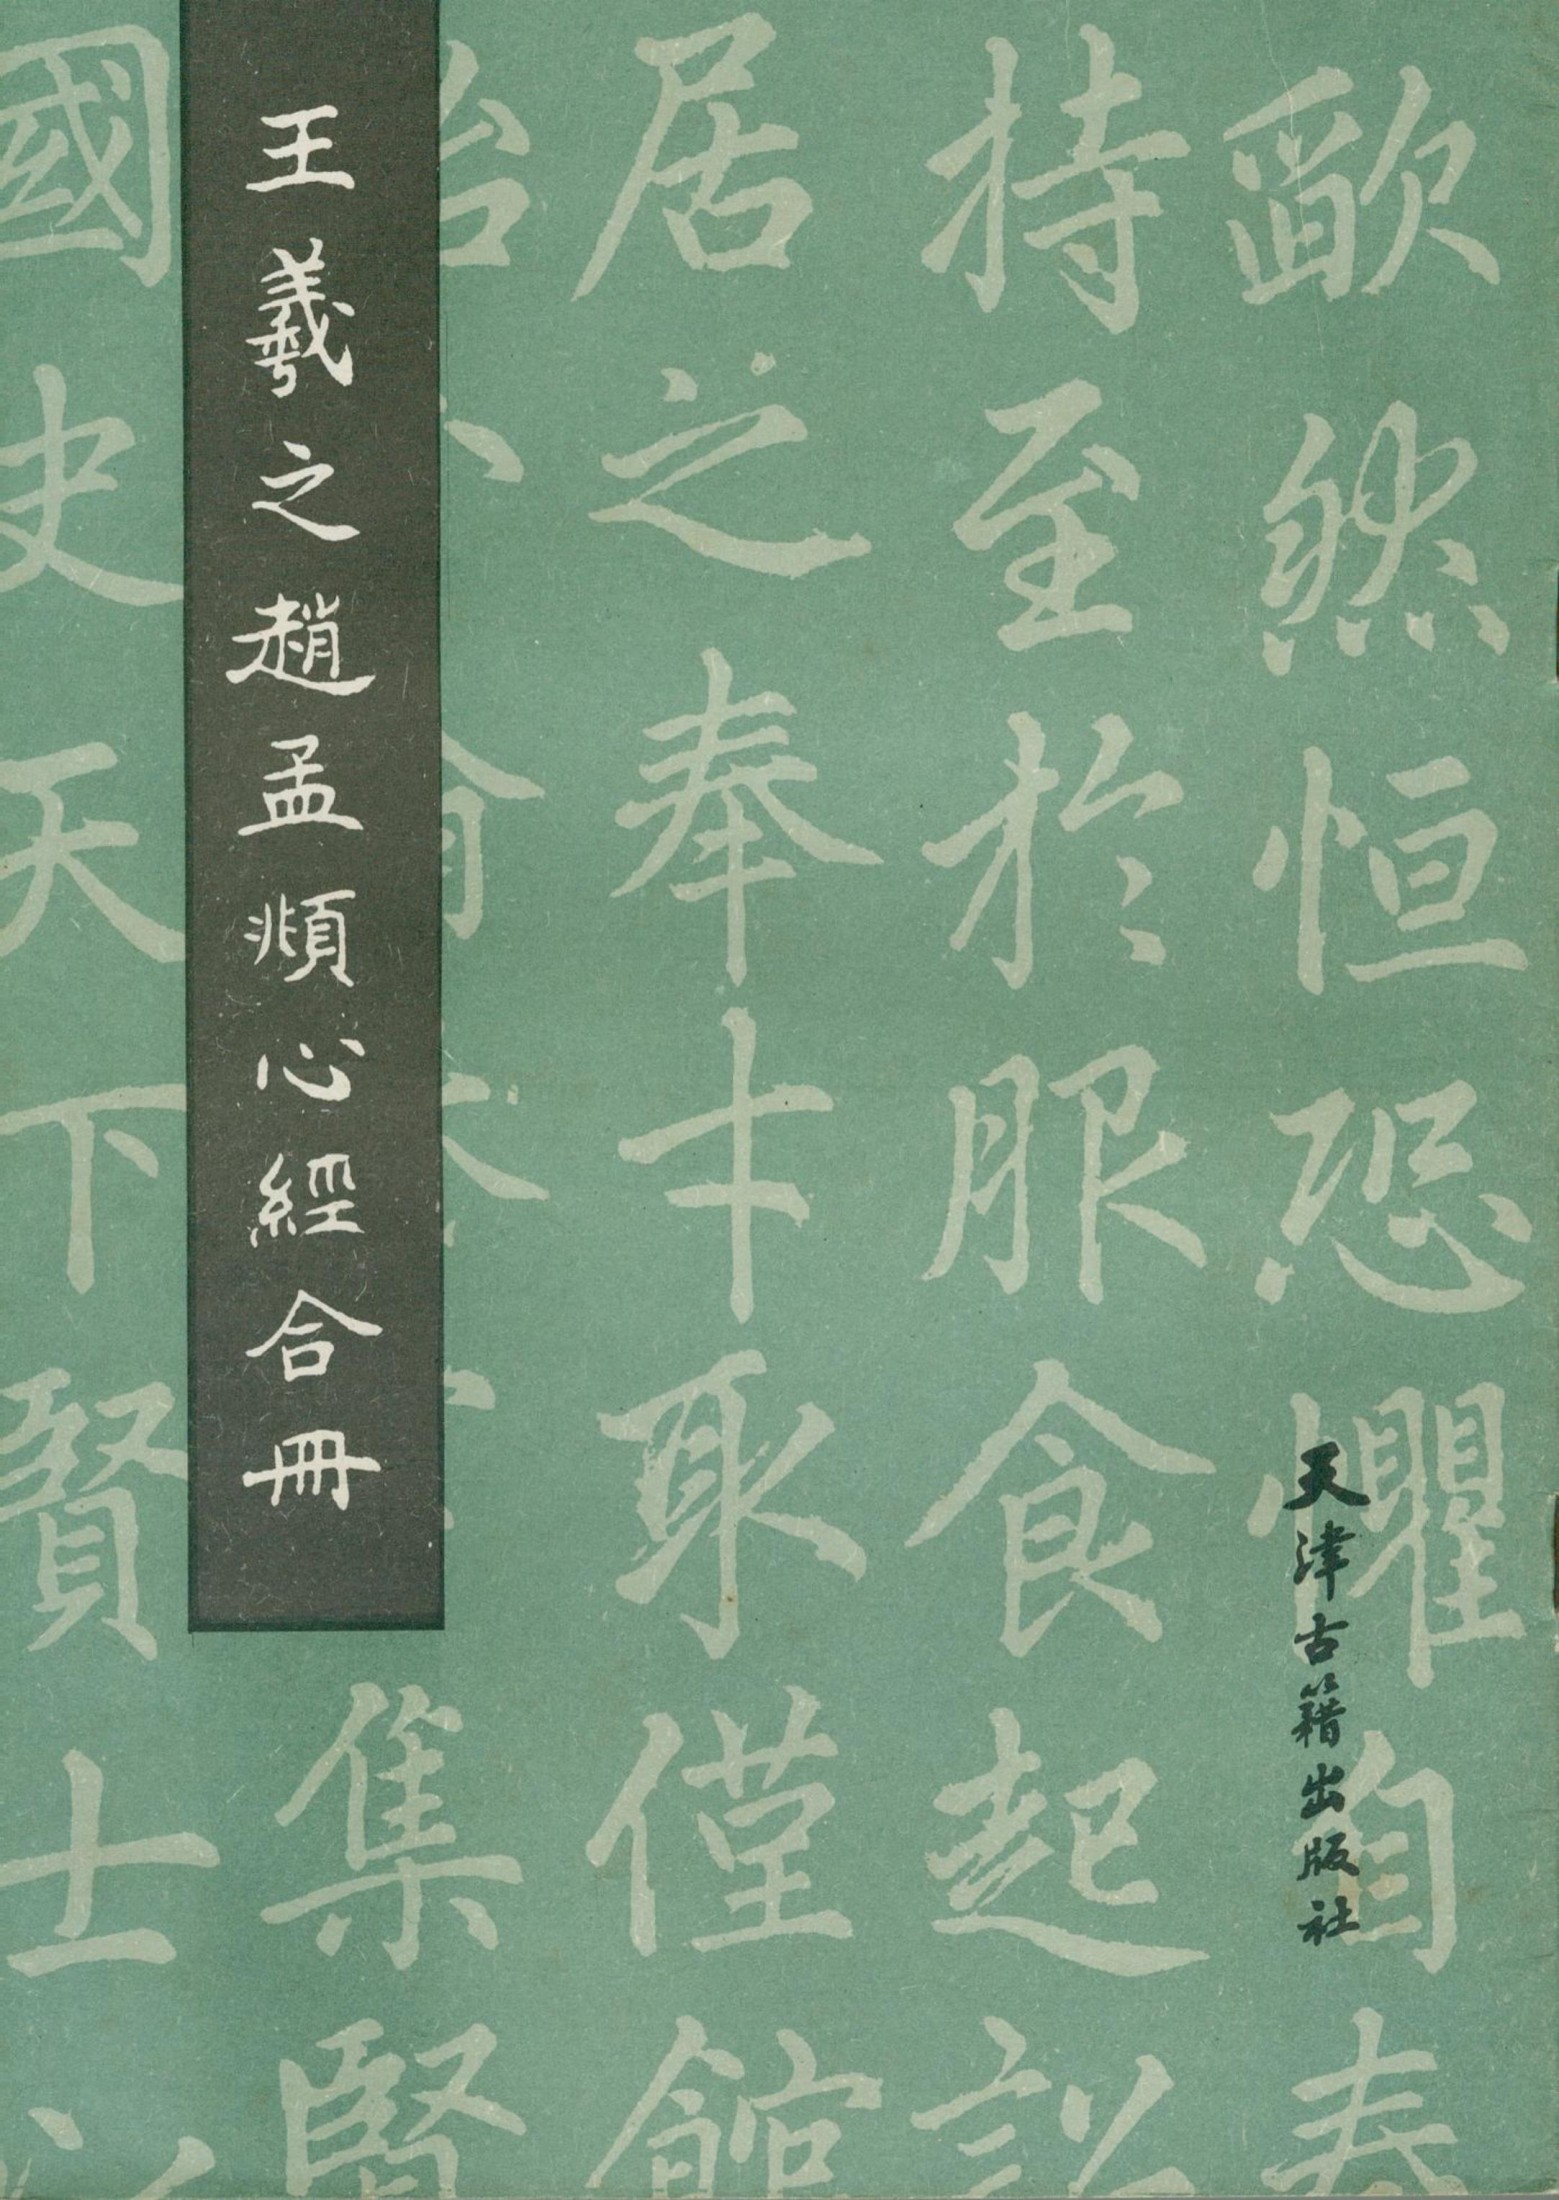 然恒恐懼自奉
持至於服食起
居之奉十取僅館
集賢
國史天下賢士
王羲之趙孟頫心經合冊
天津古籍出版社